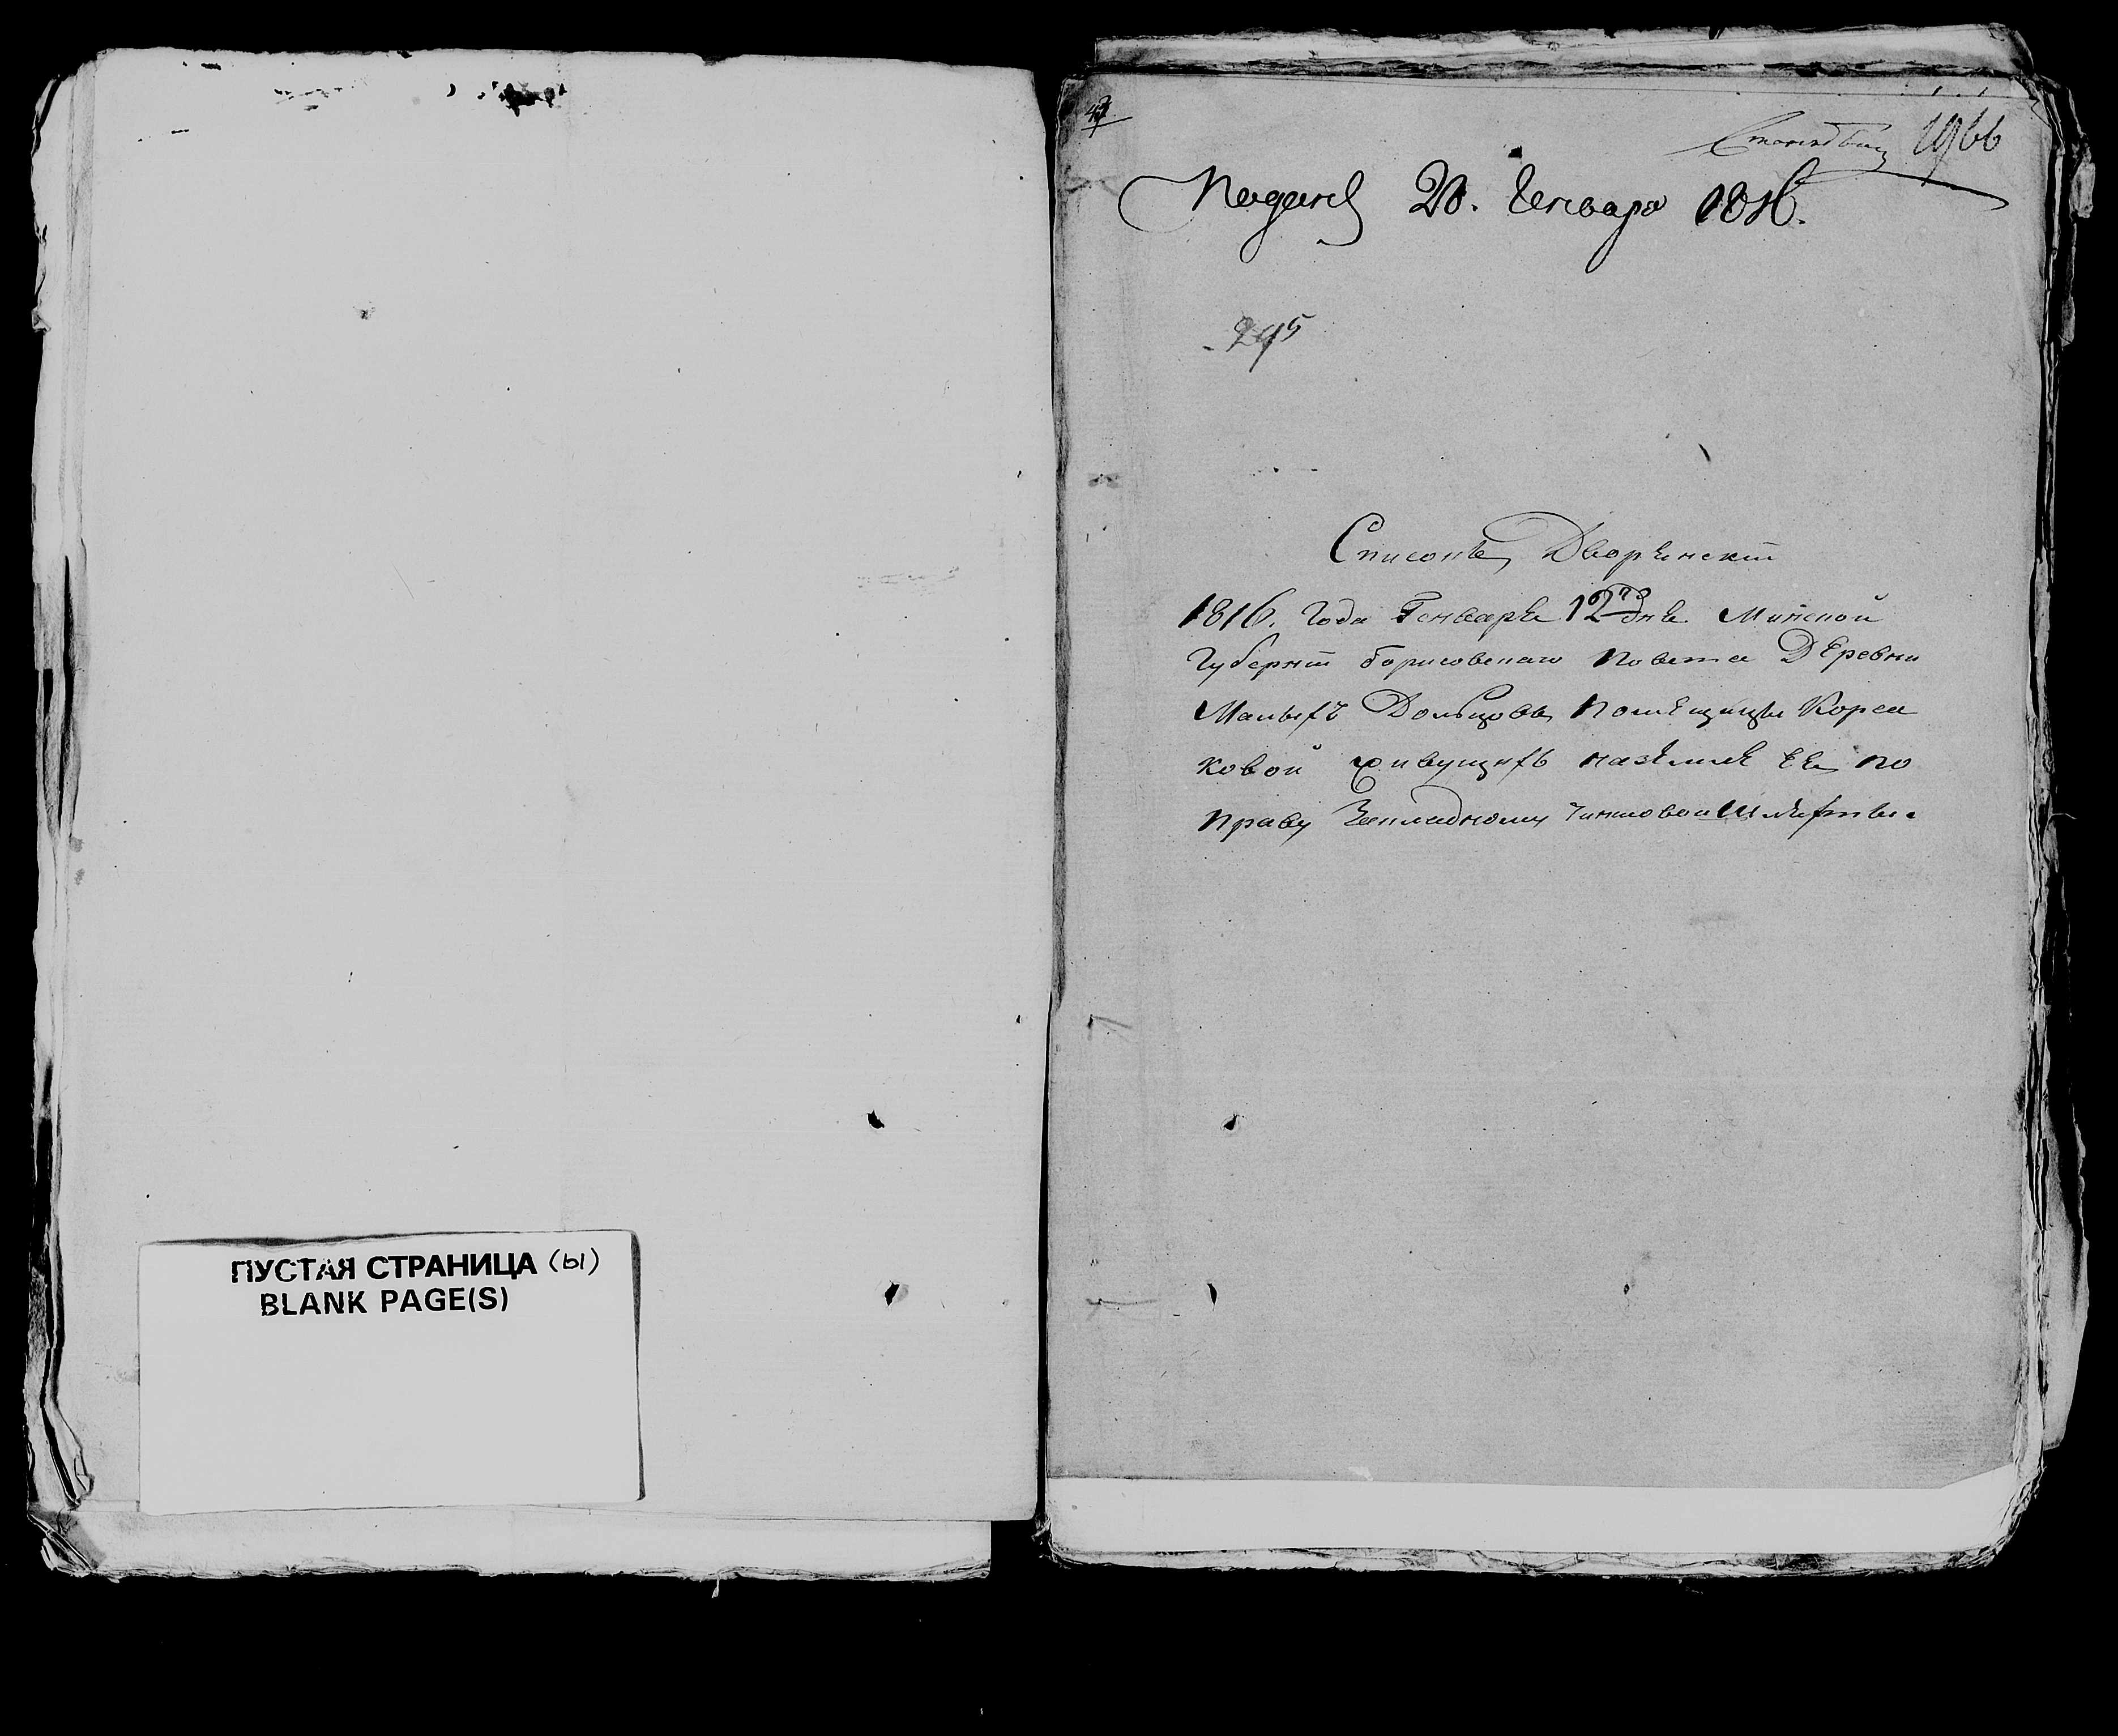 ПУСТАЯ СТРАНИЦА (ы)
BLANK PAGE(S)
1966
Подано 20. Генваря 1816.
295
Списокъ Дворянскій
1816. Года Генваря 12го дня Минской
Губерніи Борисовскаго Повета Деревни
Малыхъ Дольцовъ Помѣщицы Корса
ковой живущихъ наземле Ея по
праву Закладному чиншовой Шляхты.